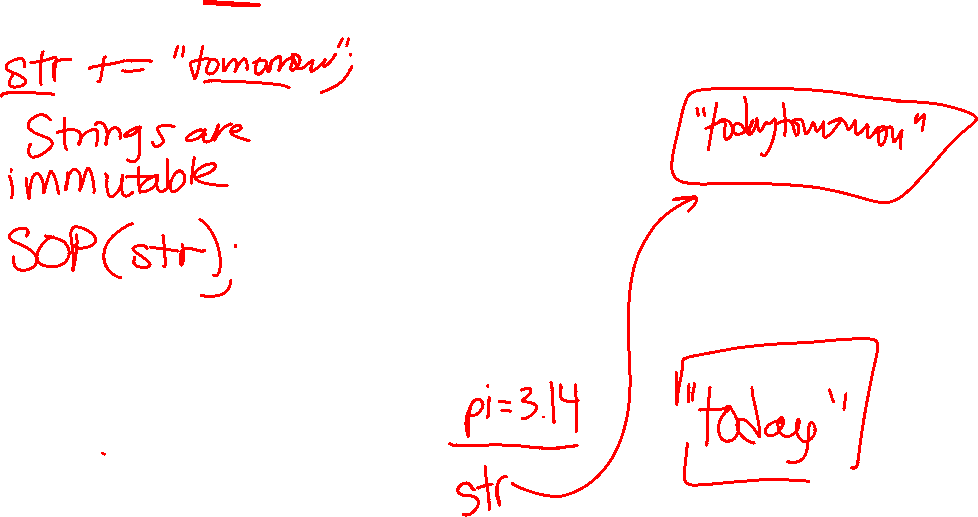 str += "tomorrow";
Strings are
immutable
SOP(str);
"todaytomorrow"
"today"
pi=3.14
str